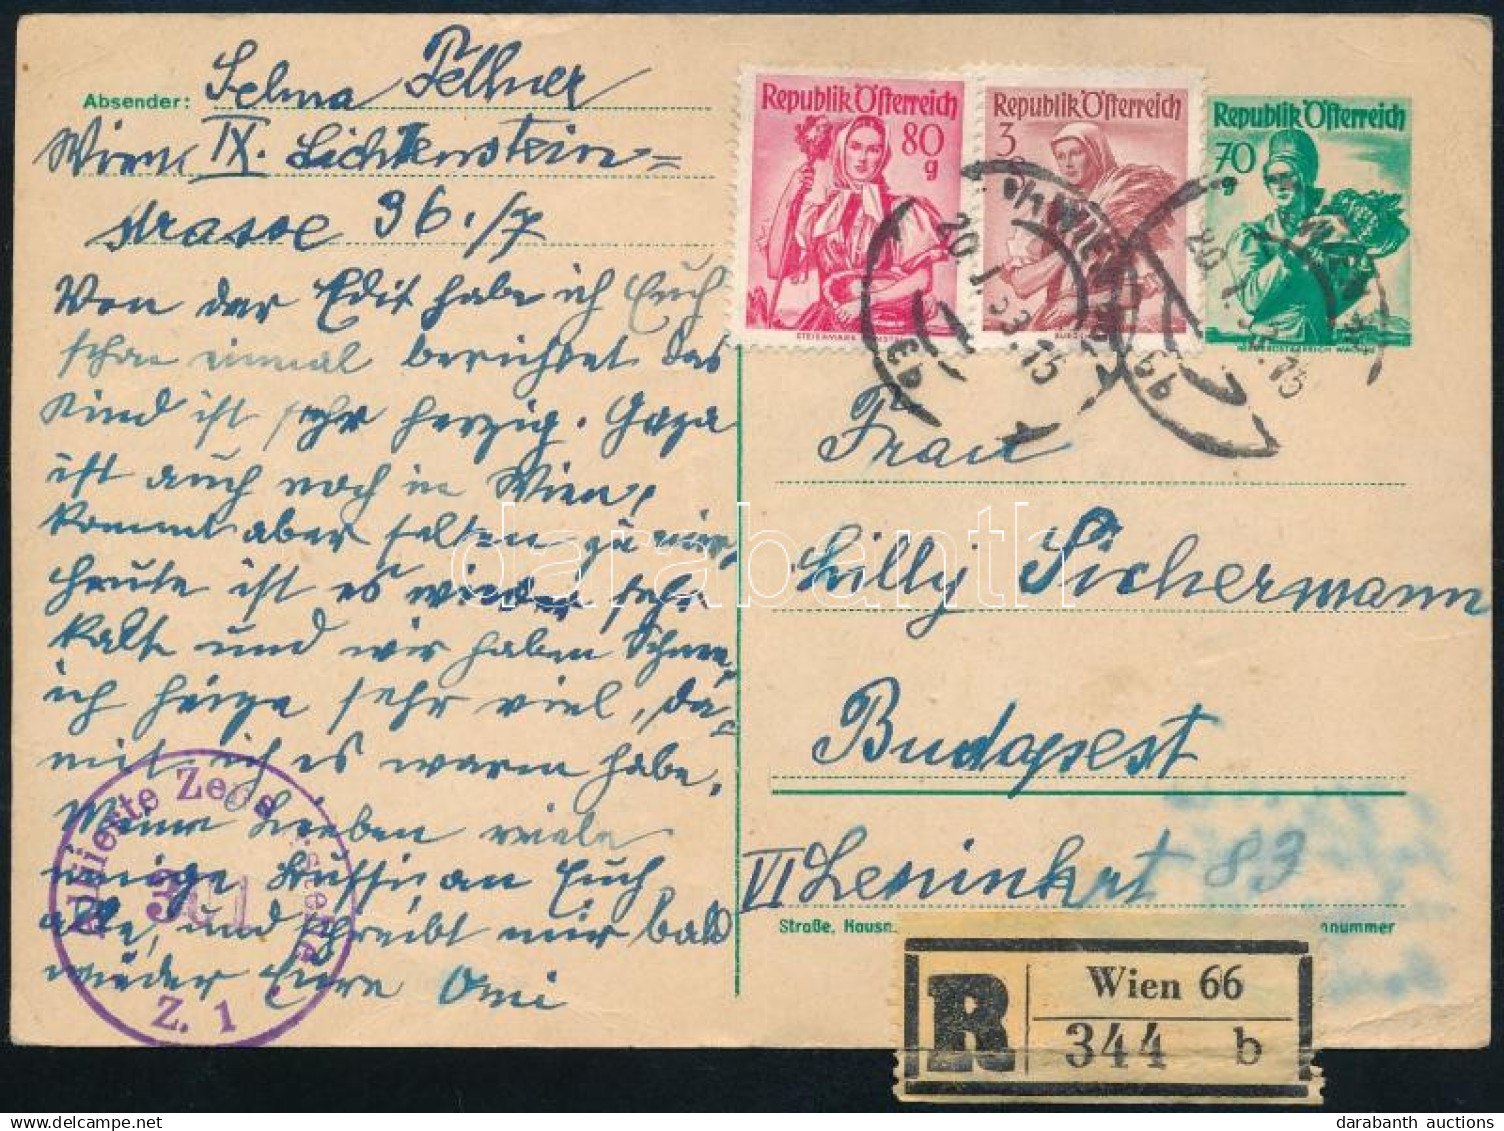 Absender: Selma Fellner
Wien, IX. Lichtenstein-
strasse 96./7
Von der Edit habe ich Euch
schon einmal berichtet das
Kind ist sehr herzig. Gaga
ist auch noch in Wien,
kommt aber selten zu mir,
heute ist es wieder sehr
kalt und wir haben Schnee,
ich heize sehr viel, da-
mit ich es warm habe.
Meine Lieben viele
innige Küsse an Euch
alle, und schreibt nur bald
wieder Eure Omi
Republik Österreich
80 g
STEIERMARK
Republik Österreich
3
Republik Österreich
70 g
WIEN
20. I. 53. 15
66
Frau
Lilly Sichermann
Budapest
VI Leninkrt 83
Straße, Hausn
nnummer
R
Wien 66
344 b
Z. 1
darabanth
darabanth auctions